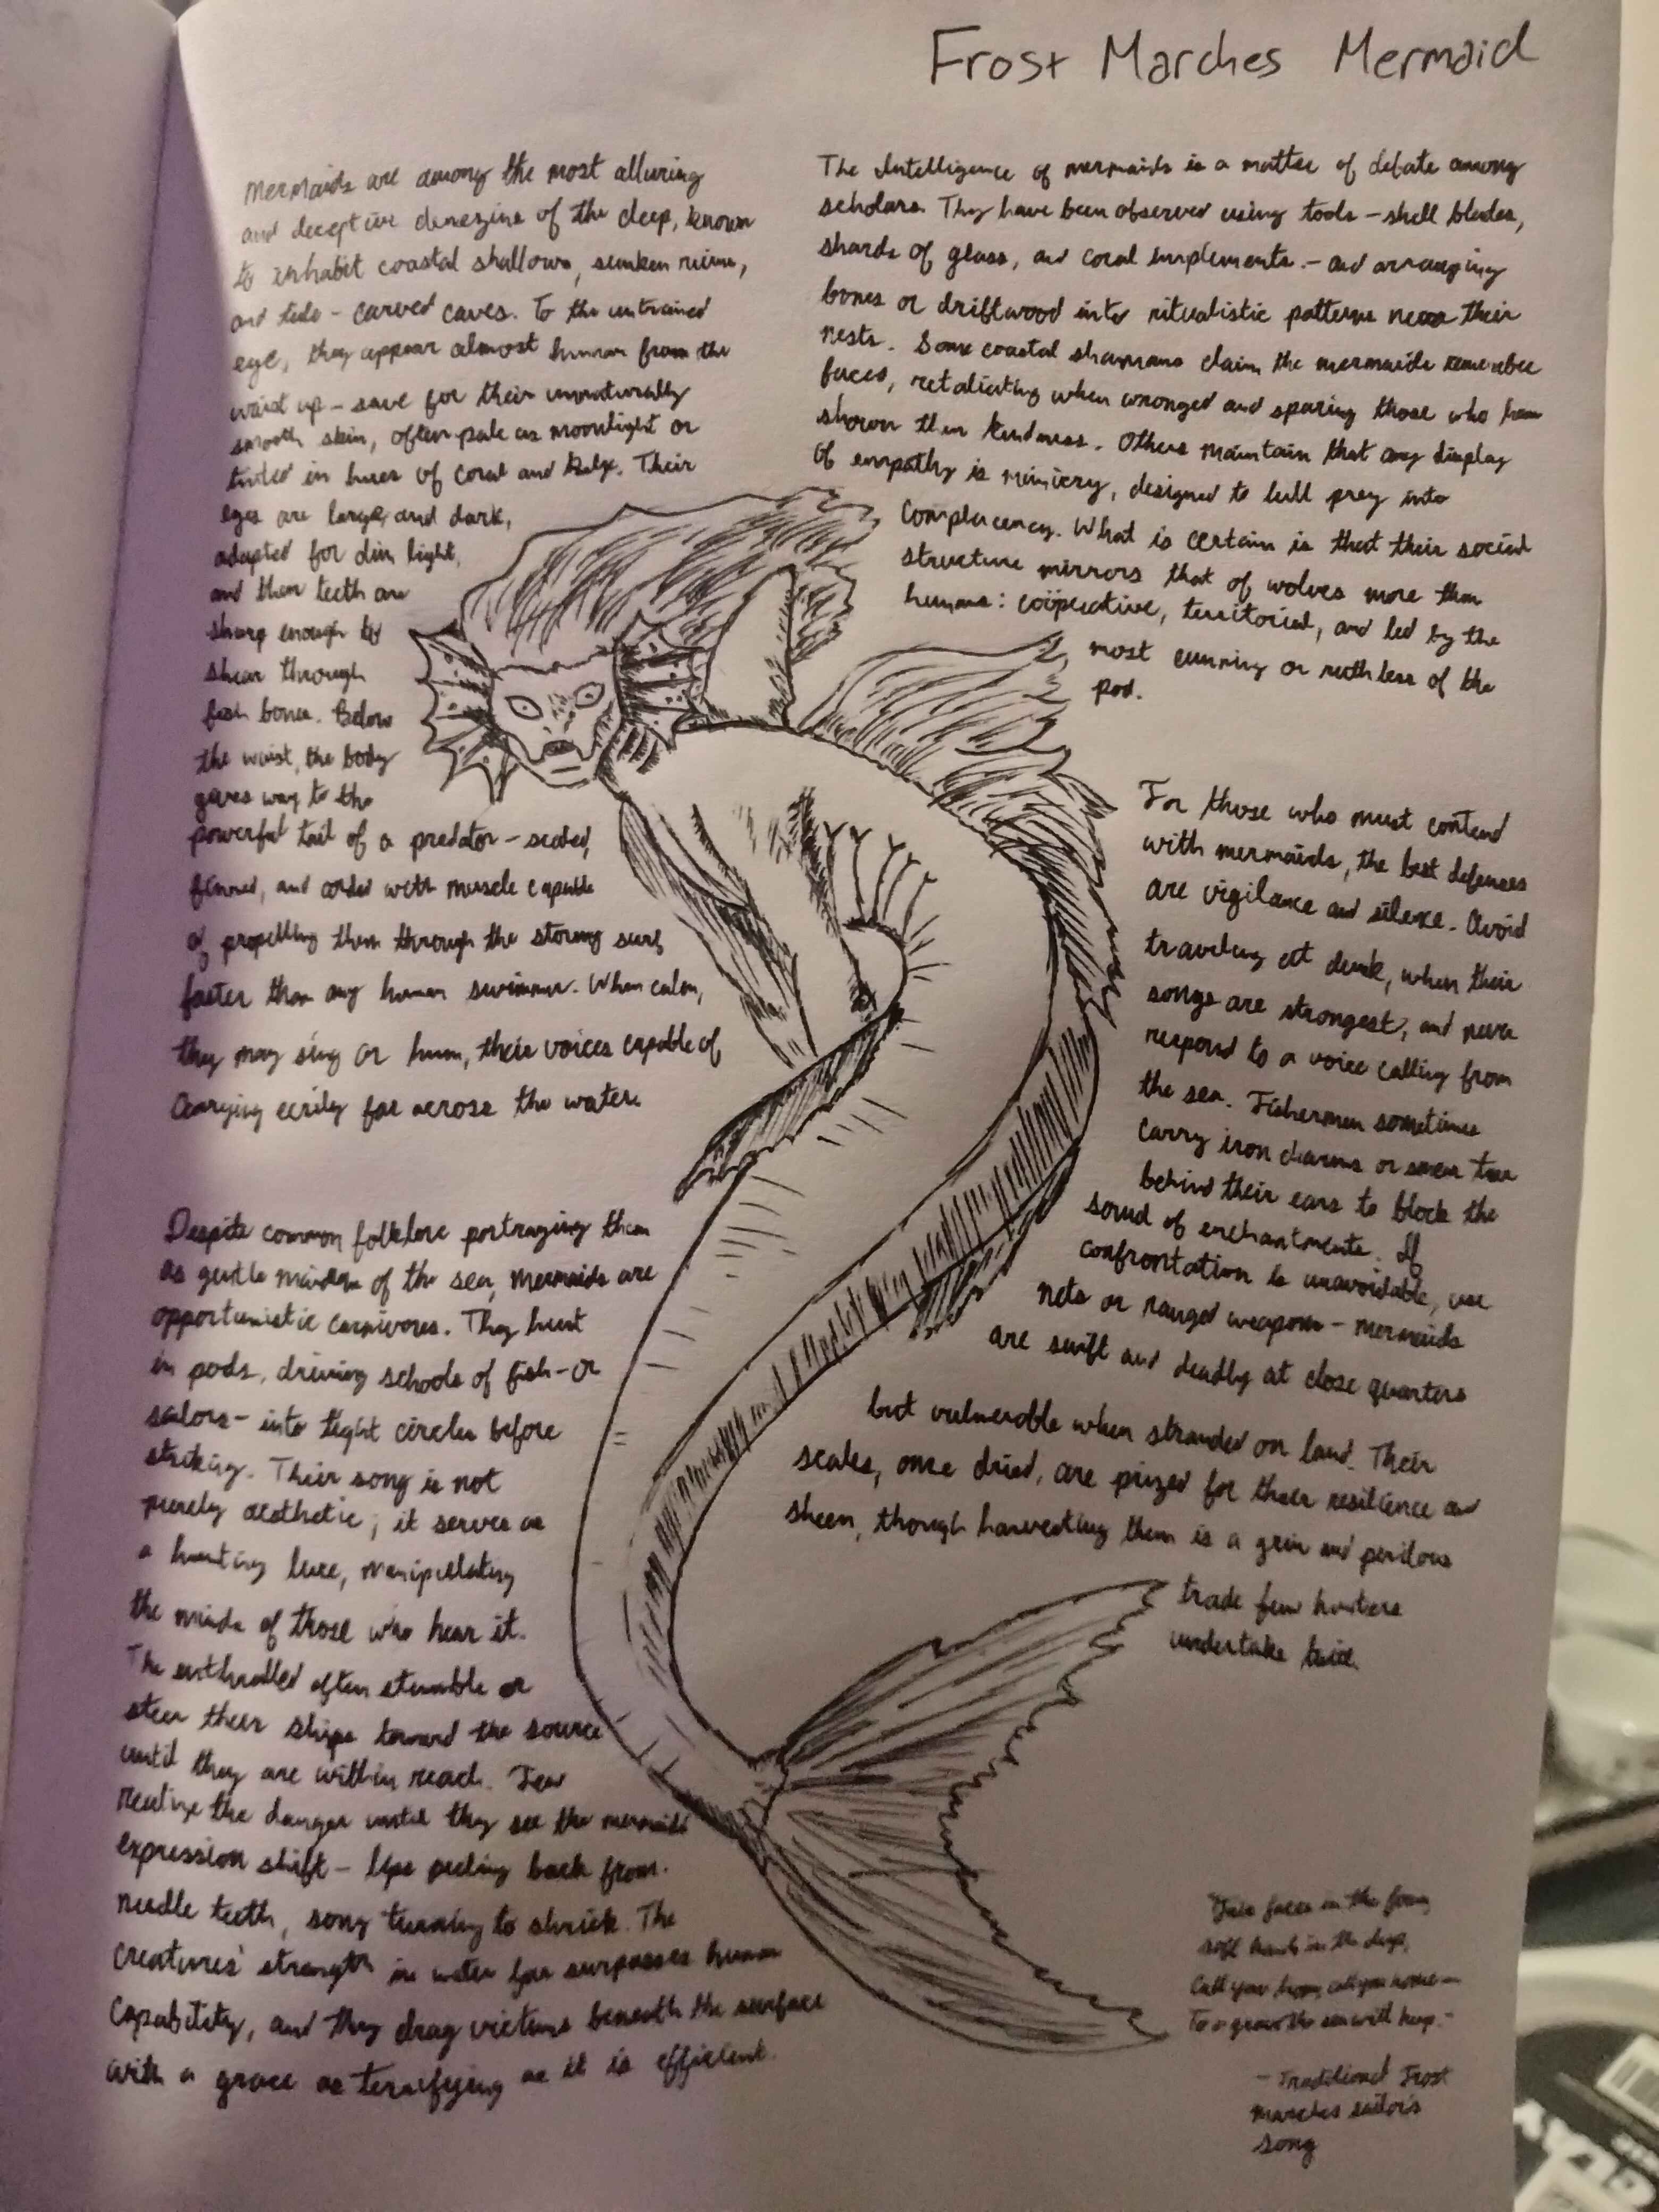 Frost Marches Mermaid
Mermaids are among the most alluring
and deceptive denezins of the deep, known
to inhabit coastal shallows, sunken ruins,
and tide-carved caves. To the untrained
eye, they appear almost human from the
waist up - save for their unnaturally
smooth skin, often pale as moonlight or
tinted in hues of coral and kelp. Their
eyes are large, and dark,
adapted for dim light,
and their teeth are
sharp enough to
shear through
fish bones. Below
the waist, the body
gives way to the
powerful tail of a predator - scaled,
finned, and corded with muscle capable
of propelling them through the stormy surf
faster than any human swimmer. When calm,
they may sing or hum, their voices capable of
carrying eerily far across the water.
Despite common folklore portraying them
as gentle maidens of the sea, mermaids are
opportunistic carnivores. They hunt
in pods, driving schools of fish - or
sailors - into tight circles before
striking. Their song is not
purely aesthetic; it serves as
a hunting lure, manipulating
the minds of those who hear it.
The enthralled often stumble or
steer their ships toward the source
until they are within reach. Few
realize the danger until they see the mermaids
expression shift - lips peeling back from
needle teeth, song turning to shriek. The
creatures' strength in water far surpasses human
capability, and they drag victims beneath the surface
with a grace as terrifying as it is efficient.
The Intelligence of mermaids is a matter of debate among
scholars. They have been observed using tools - shell blades,
shards of glass, and coral implements - and arranging
bones or driftwood into ritualistic patterns near their
nests. Some coastal shamans claim the mermaids remember
faces, retaliating when wronged and sparing those who have
shown them kindness. Others maintain that any display
of empathy is mimicry, designed to lull prey into
complacency. What is certain is that their social
structure mirrors that of wolves more than
humans: coöperative, territorial, and led by the
most cunning or ruthless of the
pod.
For those who must contend
with mermaids, the best defenses
are vigilance and silence. Avoid
traveling at dusk, when their
songs are strongest, and never
respond to a voice calling from
the sea. Fishermen sometimes
carry iron charms or smear tar
behind their ears to block the
sound of enchantments. If
confrontation is unavoidable, use
nets or ranged weapons - mermaids
are swift and deadly at close quarters
but vulnerable when stranded on land. Their
scales, once dried, are prized for their resilience and
sheen, though harvesting them is a grim and perilous
trade few hunters
undertake twice.
faces in the foam,
soft hands in the deep,
Call you , call you home -
To a grave the sea will keep."
- Traditional Frost
Marches sailor's
song